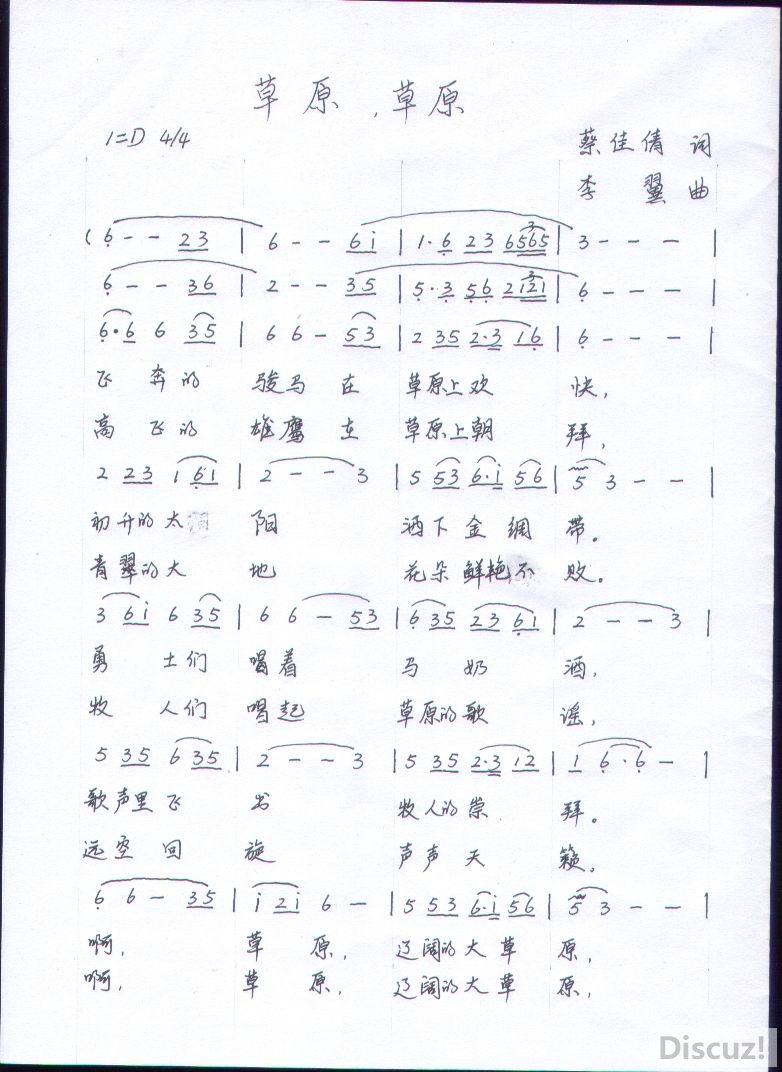 草原，草原
1=D 4/4
蔡佳倩 词
李翼 曲
( 6 - - 23 | 6 - - 6i | 1·6 23 6565 | 3 - - - |
6 - - 36 | 2 - - 35 | 5·3 56 2121 | 6 - - - |
6·6 6 35 | 6 6 - 53 | 2 35 2·3 16 | 6 - - - |
飞奔的 骏马在 草原上欢 快，
高飞的 雄鹰在 草原上朝 拜，
2 23 1 6·1 | 2 - - 3 | 5 53 6·i 56 | 5 3 - - |
初升的太 阳 洒下金绸 带。
青翠的大 地 花朵鲜艳不 败。
3 6i 6 35 | 6 6 - 53 | 635 23 61 | 2 - - 3 |
勇士们 喝着 马奶 酒，
牧人们 唱起 草原的歌 谣，
5 35 6 35 | 2 - - 3 | 5 35 2·3 12 | 1 6·6 - |
歌声里飞 出 牧人的崇 拜。
远空回 旋 声声天 籁。
6 6 - 35 | i 2i 6 - | 5 53 6·i 56 | 5 3 - - |
啊， 草原， 辽阔的大草 原，
啊， 草原， 辽阔的大草 原，
Discuz!